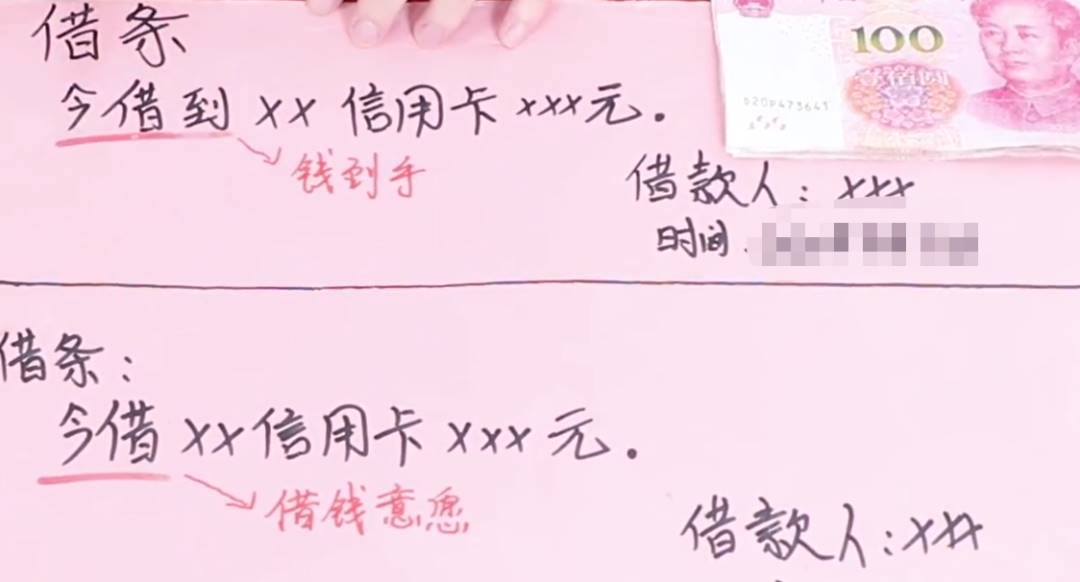 借条
今借到 xx 信用卡 xxx元.
钱到手
100
壹佰圆
借款人: xxx
时间.
借条:
今借 xx 信用卡 xxx 元.
借钱意愿
借款人: xxx